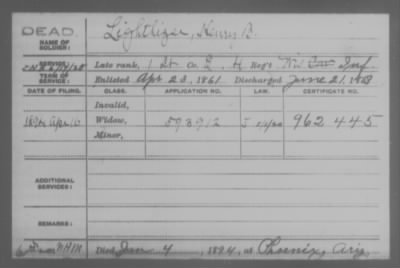 DEAD.
NAME OF SOLDIER: Lightlizer, Henry B.
SERVICE: Late rank, 1 Lt Co. E, H Reg't Wis Inf
TERM OF SERVICE: Enlisted Apr 23, 1861. Discharged June 21, 1863
DATE OF FILING. CLASS. APPLICATION NO. LAW. CERTIFICATE NO.
Invalid,
1894 Apr 16 Widow, 593912 962445
Minor,
ADDITIONAL SERVICES:
REMARKS:
Died Jan 4, 1894, at Phoenix, Ariz.